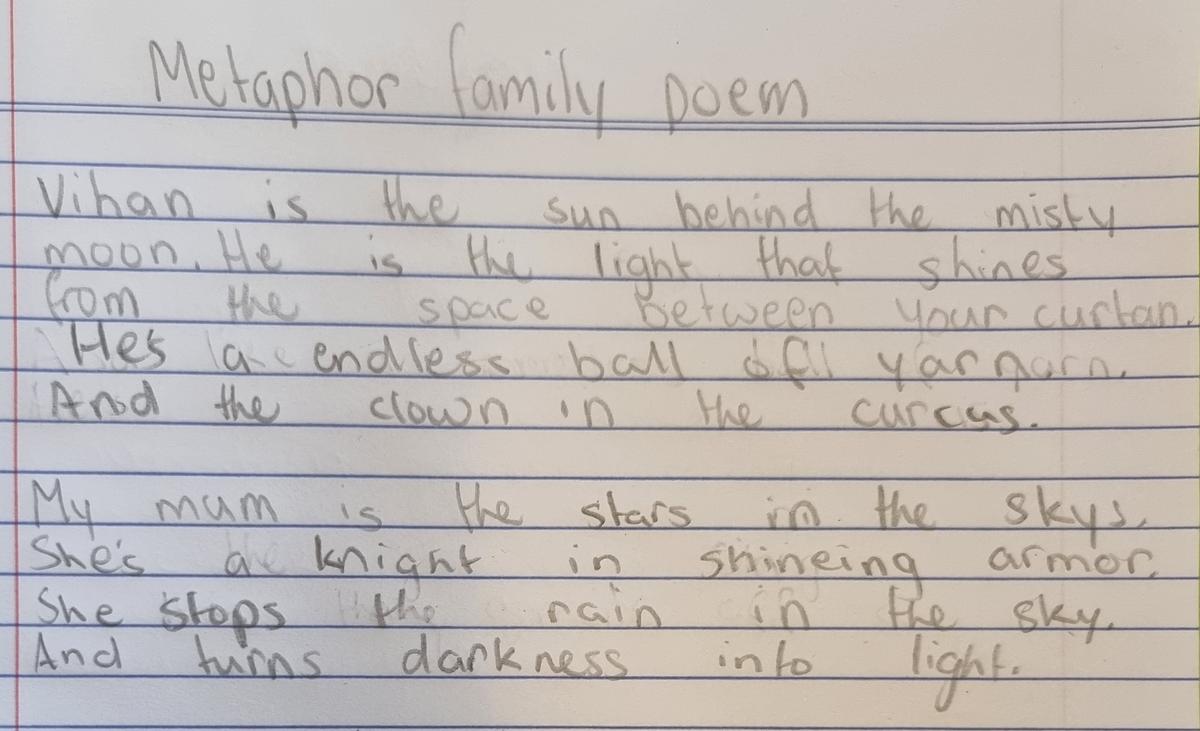 Metaphor family poem
Vihan is the sun behind the misty
moon. He is the light that shines
from the space between your curtan.
He's a endless ball of yarn.
And the clown in the curcus.
My mum is the stars in the skys.
She's a knight in shineing armor.
She stops the rain in the sky.
And turns darkness into light.